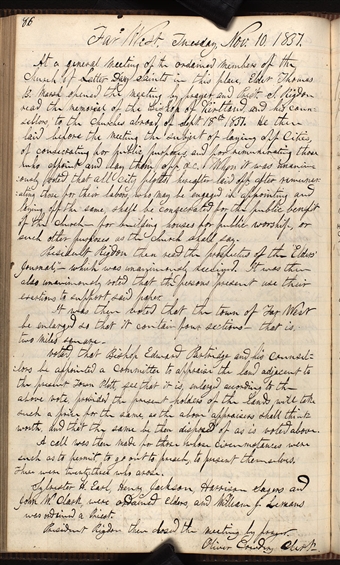 86
Far West. Tuesday, Nov. 10. 1837.
At a general meeting of the ordained members of the
Church of Latter Day Saints in this place, Elder Thomas
B. Marsh opened the meeting by prayer, and Prest. S. Rigdon
read the memorial of the Bishop of Kirtland and his coun-
sellors, to the Churches abroad of Sept 18th 1837. He then
laid before the meeting the subject of laying off Cities,
of consecrating for public purposes and for remunerating those
who appoint and lay them off &c. When it was unanim-
ously voted that all City plotts hereafter laid off, after remuner-
ating those for their labors, who may be engaged in appointing and
laying off the same, shall be consecrated for the public benefit
of the church— for building houses for public worship, or
such other purposes as the church shall say.
President Rigdon then read the prospectus of the Elders'
Journal,— which was unanimously received. It was then
also unanimously voted that the persons present use their
exertions to support said paper.
It was then voted that the town of Far West
be enlarged so that it contain four sections— that is,
two miles square—
Voted, that Bishop Edward Partridge and his Counsel-
lors be appointed a Committee to appraise the land adjacent to
the present town plott, & see that it is, enlarged according to the
above vote, provided the present holders of the Lands will take
such a price for the same, as the above appraisers shall think
worth, and that the same be then disposed of as is voted above.
A call was then made for those whose circumstances were
such as to permit to go out to preach, to present themselves.
There were twenty three who arose.
Sylvester H. Earl, Henry Jackson, Harrison Sagers and
John M. Clark were ordained Elders, and William J. Lemans
was ordained a Priest.
President Rigdon then closed the meeting by prayer.
Oliver Cowdery, Clerk